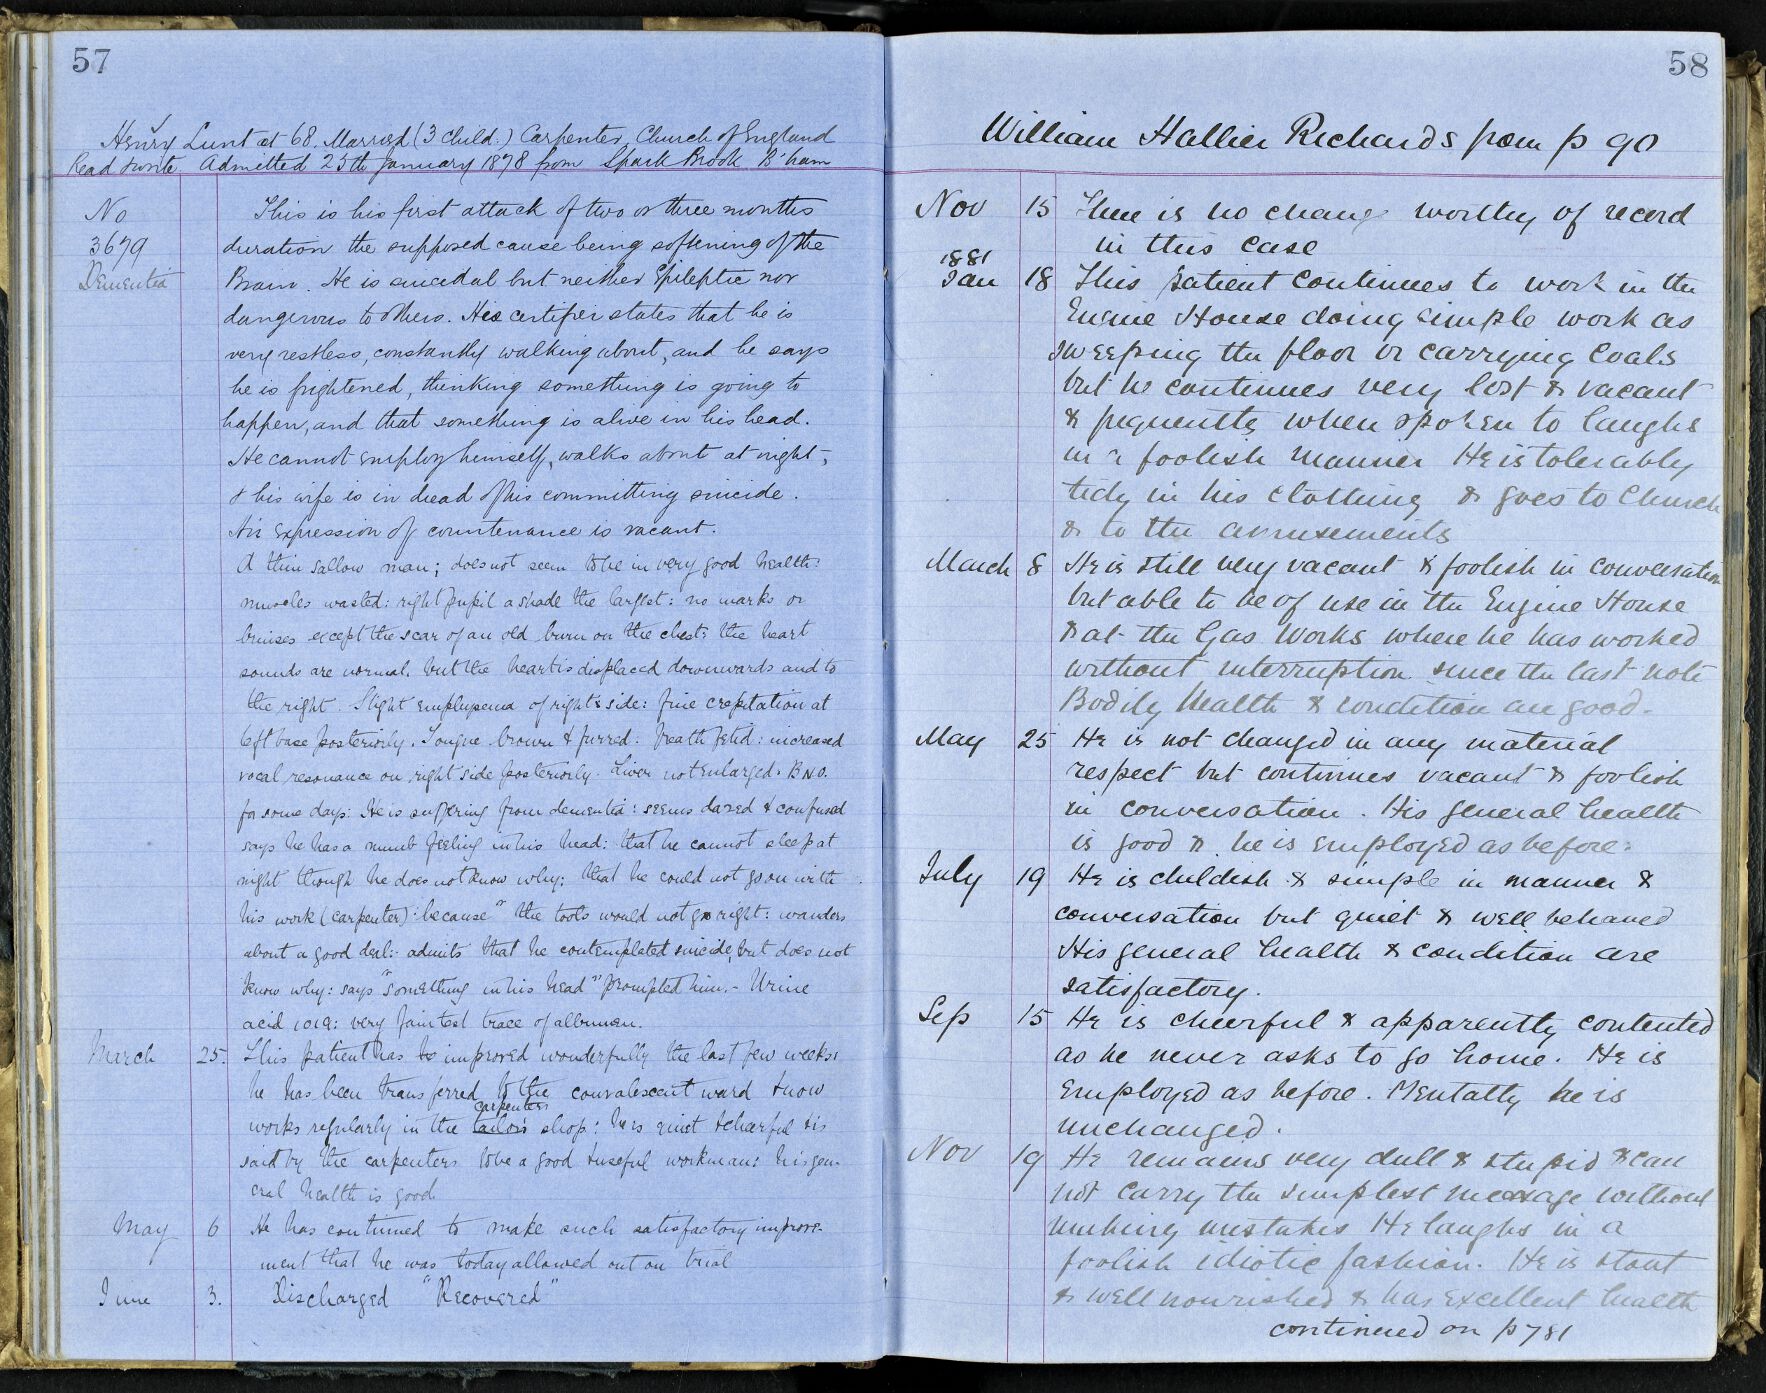 57
Henry Lunt æt 68. Married (3 child.) Carpenter, Church of England
Read & write Admitted 25th January 1878 from Spark Brook B'ham
No
3679
Dementia
This is his first attack of two or three months
duration the supposed cause being softening of the
Brain. He is suicidal but neither Epileptic nor
dangerous to others. His certifier states that he is
very restless, constantly walking about, and he says
he is frightened, thinking something is going to
happen, and that something is alive in his head.
He cannot employ himself, walks about at night,
& his wife is in dread of his committing suicide.
His expression of countenance is vacant.
A thin sallow man; does not seem to be in very good health:
muscles wasted: right pupil a shade the largest: no marks or
bruises except the scar of an old burn on the chest: the heart
sounds are normal, but the heart is displaced downwards and to
the right. Slight emphysema of right side: fine crepitation at
left base posteriorly. Tongue brown & furred. Breath fetid: increased
vocal resonance on right side posteriorly. Liver not enlarged. B.N.O.
for some days: He is suffering from dementia: seems dazed & confused
says he has a numb feeling in his head: that he cannot sleep at
night though he does not know why: that he could not go on with
his work (carpenter) because "the tools would not go right: wanders
about a good deal: admits that he contemplated suicide, but does not
know why: says "something in his head" prompted him.- Urine
acid 1019: very faintest trace of albumen.
March 25. This patient has improved wonderfully the last few weeks:
he has been transferred to the convalescent ward & now
carpenters
works regularly in the tailors shop: he is quiet & cheerful & is
said by the carpenters to be a good & useful workman: his gen-
eral health is good
May 6 He has continued to make such satisfactory improve-
ment that he was today allowed out on trial
June 3. Discharged "Recovered"
58
William Hallier Richards from p 90
Nov 15 There is no change worthy of record
in this case
1881
Jan 18 This patient continues to work in the
Engine House doing simple work as
sweeping the floor or carrying Coals
but he continues very lost & vacant
& frequently when spoken to laughs
in a foolish manner He is tolerably
tidy in his clothing & goes to Church
& to the amusements
March 8 He is still very vacant & foolish in conversation
but able to be of use in the Engine House
& at the Gas Works where he has worked
without interruption since the last note
Bodily Health & condition are good.
May 25 He is not changed in any material
respect but continues vacant & foolish
in conversation. His general health
is good & he is employed as before.
July 19 He is childish & simple in manner &
conversation but quiet & well behaved
His general health & condition are
satisfactory.
Sep 15 He is cheerful & apparently contented
as he never asks to go home. He is
Employed as before. Mentally he is
unchanged.
Nov 19 He remains very dull & stupid & can
not carry the simplest message without
making mistakes He laughs in a
foolish idiotic fashion. He is stout
& well nourished & has excellent health
continued on p 781